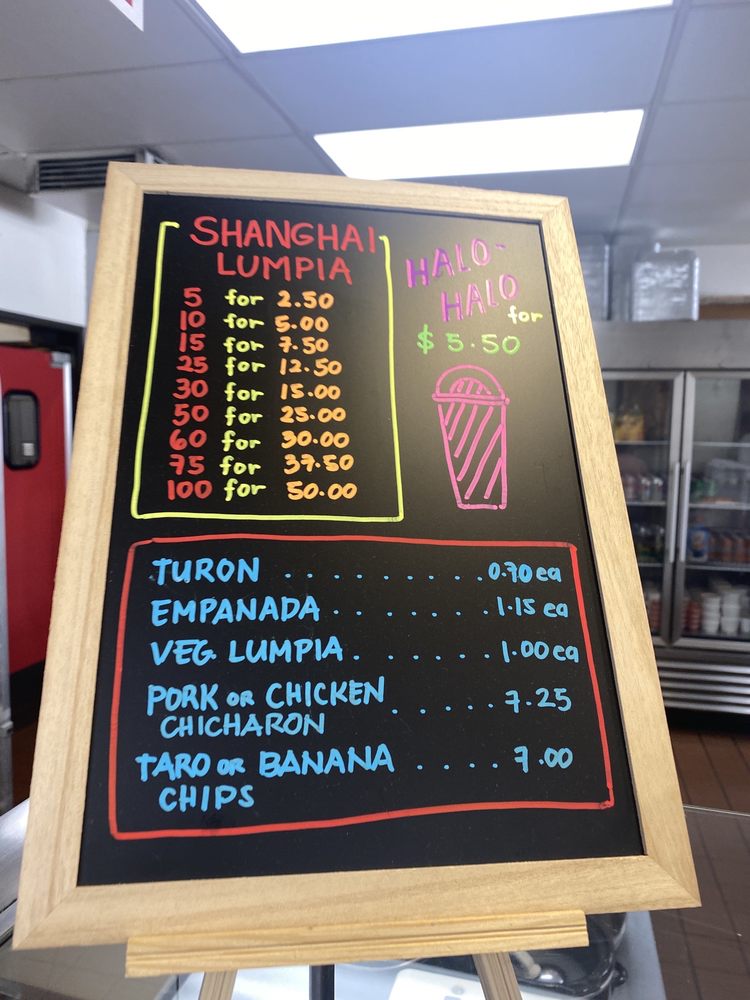 SHANGHAI
LUMPIA
5 for 2.50
10 for 5.00
15 for 7.50
25 for 12.50
30 for 15.00
50 for 25.00
60 for 30.00
75 for 37.50
100 for 50.00
HALO-
HALO
for
$5.50
TURON . . . . . . . . . 0.70 ea
EMPANADA . . . . . . . 1.15 ea
VEG LUMPIA . . . . . . 1.00 ea
PORK OR CHICKEN
CHICHARON . . . . . 7.25
TARO OR BANANA . . . . 7.00
CHIPS